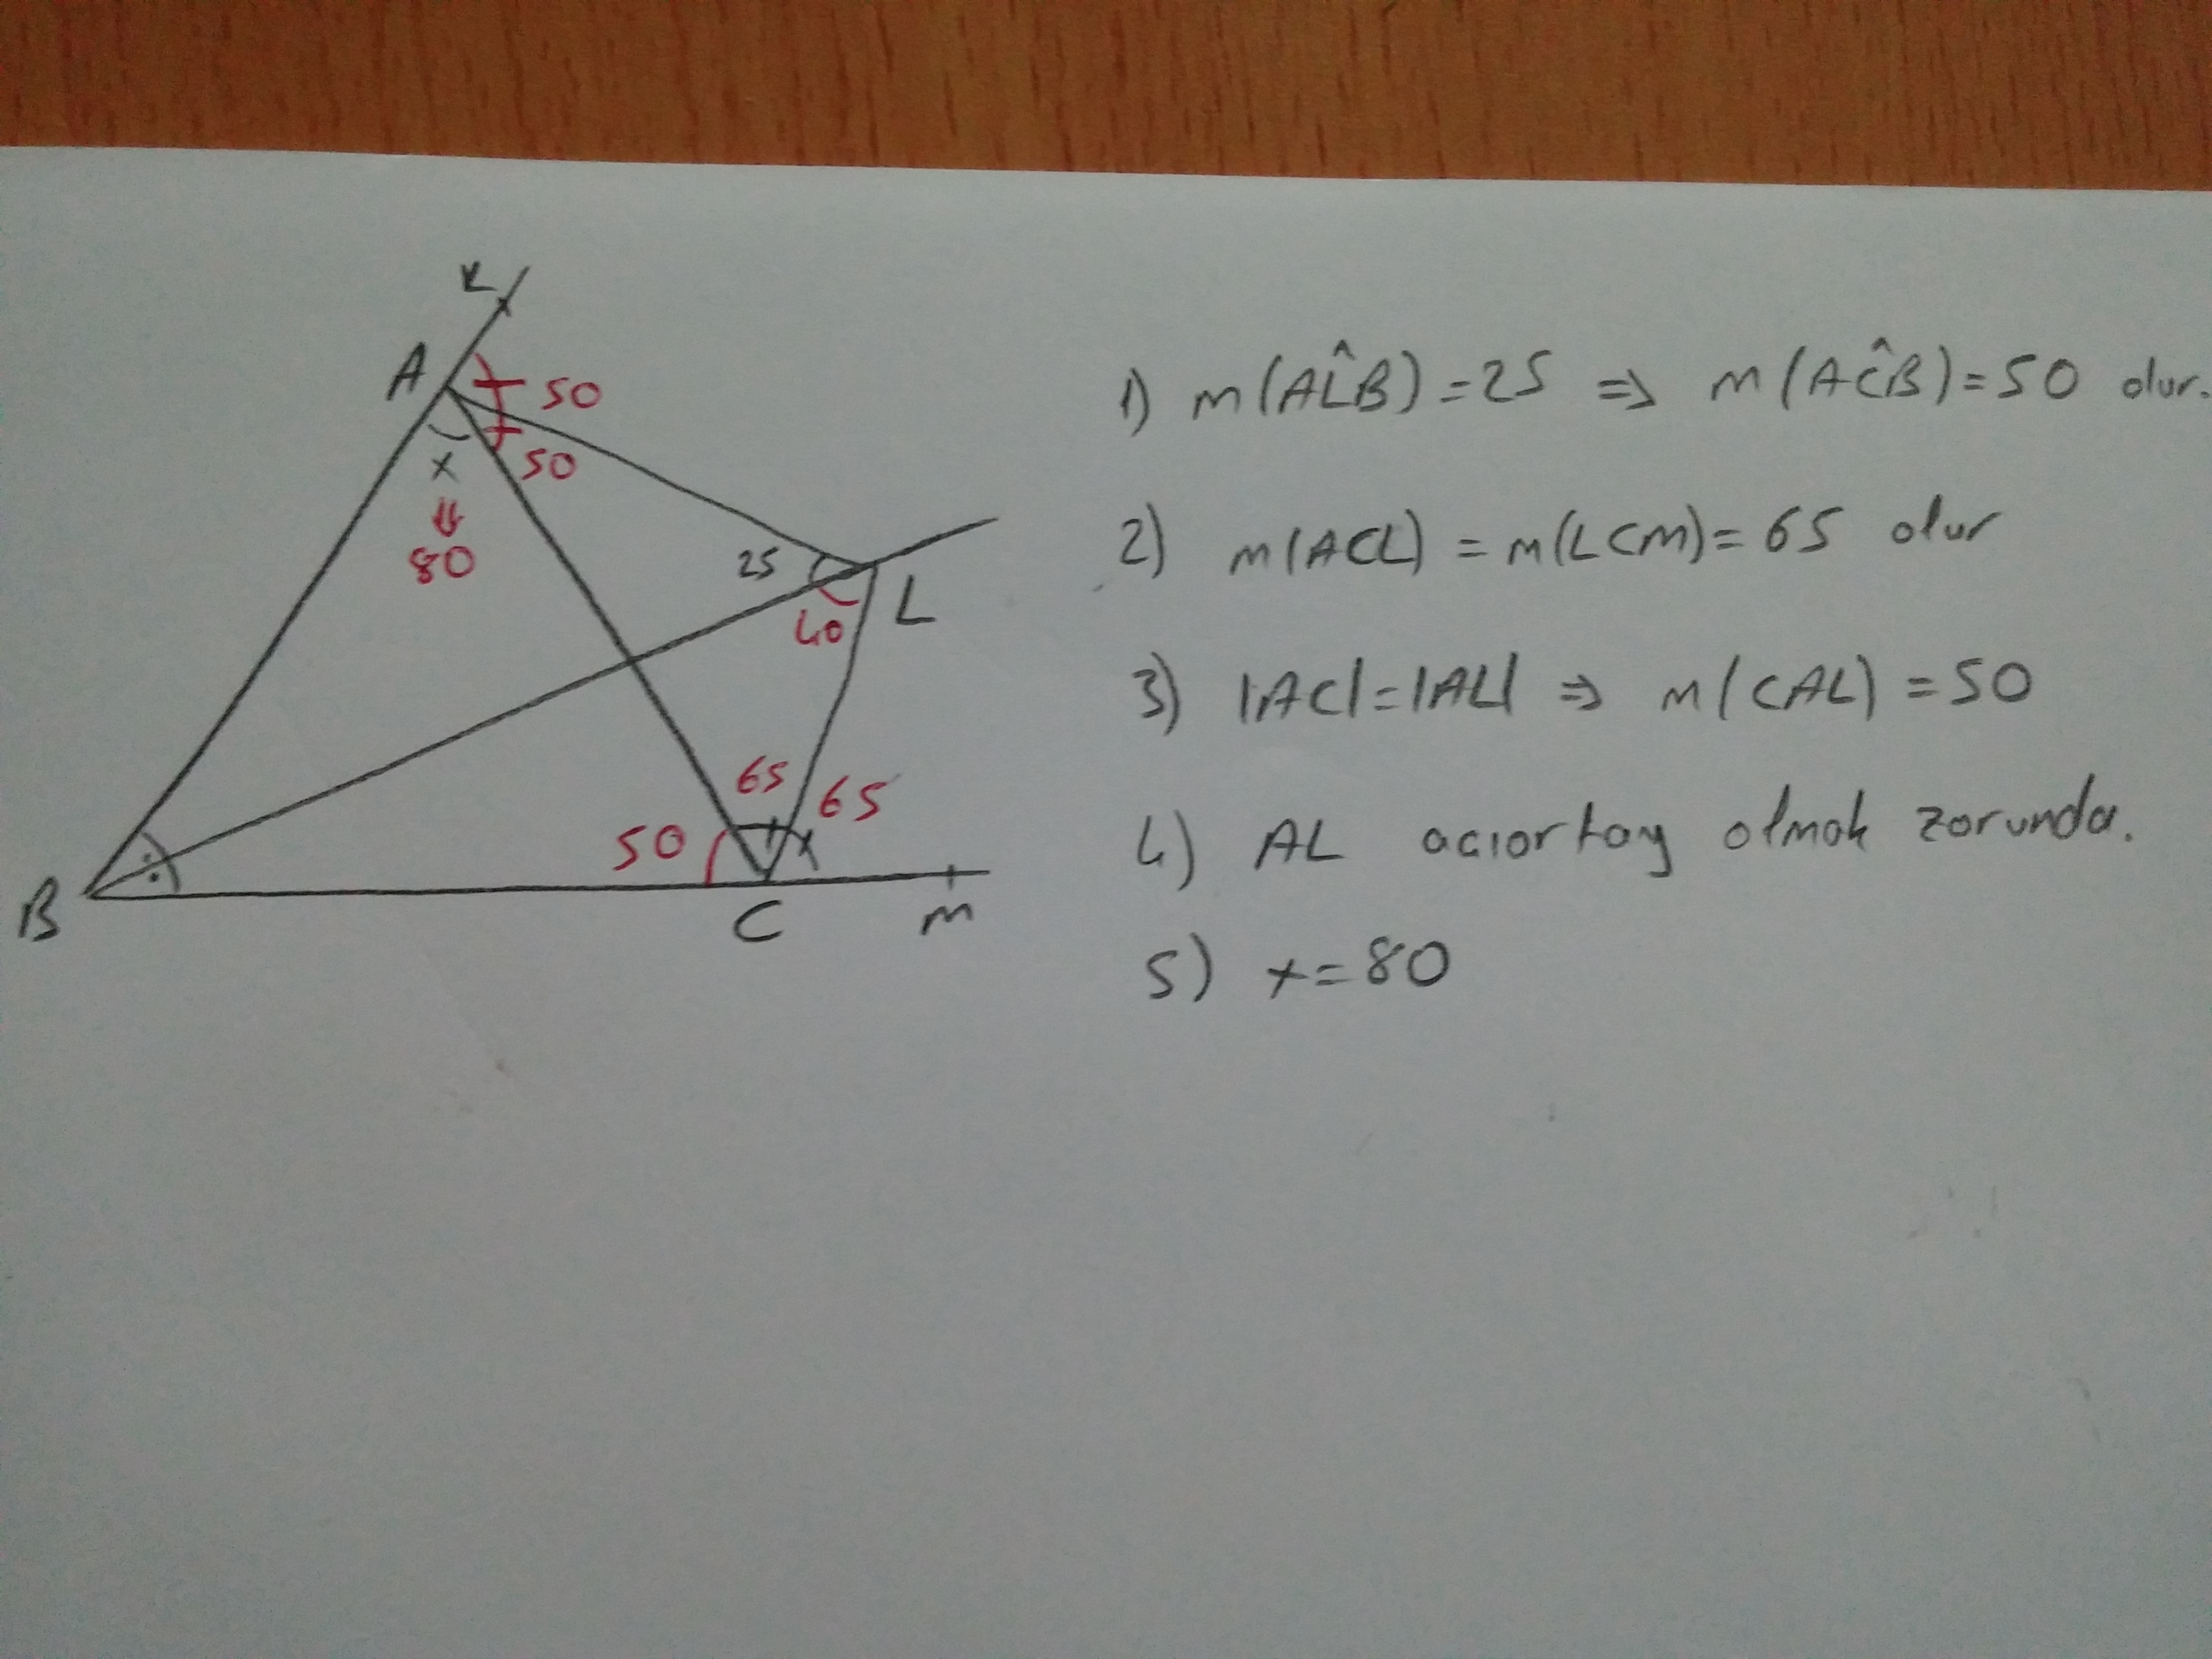 K
A
50
50
x
⇓
80
25
40
L
65
65
50
B
C
M
1) m(AL̂B) = 25 ⇒ m(AĈB) = 50 olur.
2) m(ACL) = m(LCM) = 65 olur
3) |AC| = |AL| ⇒ m(CAL) = 50
4) AL açıortay olmak zorunda.
5) x = 80